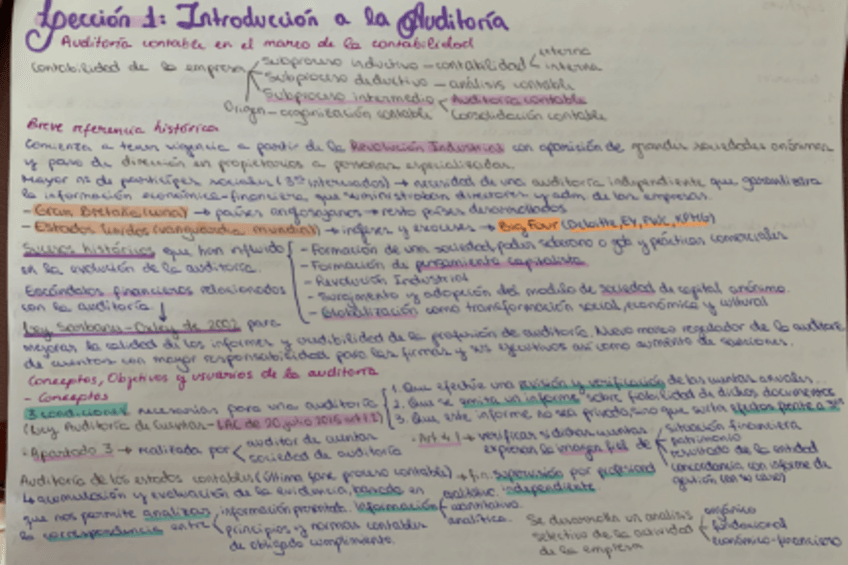 Lección 1: Introducción a la Auditoría
Auditoría contable en el marco de la contabilidad
Contabilidad de la empresa
Subproceso inductivo - contabilidad
externa
interna
Subproceso deductivo - análisis contable
Subproceso intermedio
Auditoría contable
Consolidación contable
Origen - organización contable
Breve referencia histórica
Comienza a tener vigencia a partir de la Revolución Industrial con aparición de grandes sociedades anónimas
y paso de dirección en propietarios a personas especializadas.
Mayor nº de partícipes sociales (3os interesados) → necesidad de una auditoría independiente que garantizara
la información económica-financiera que suministraban directores y adm. de las empresas.
- Gran Bretaña (cuna) → países anglosajones → resto países desarrollados
- Estados Unidos (vanguardia mundial) → ingleses y escoceses → Big Four (Deloitte, EY, PWC, KPMG)
Sucesos históricos que han influido
en la evolución de la auditoría.
- Formación de una sociedad, poder soberano o gob y prácticas comerciales
- Formación de pensamiento capitalista
- Revolución Industrial
- Surgimiento y adopción del modelo de sociedad de capital anónimo
- Globalización como transformación social, económica y cultural
Escándalos financieros relacionados
con la auditoría ↓
Ley Sarbans-Oxley de 2002 para
mejorar la calidad de los informes y credibilidad de la profesión de auditoría. Nuevo marco regulador de la auditoría
de cuentas con mayor responsabilidad para las firmas y sus ejecutivos así como aumento de sanciones.
Conceptos, Objetivos y usuarios de la auditoría
- Conceptos
3 condiciones necesarias para una auditoría
(Ley Auditoría de Cuentas - LAC de 20 julio 2015 art 1.2)
1. Que efectúe una revisión y verificación de las cuentas anuales...
2. Que se emita un informe sobre fiabilidad de dichos documentos
3. Que este informe no sea privado, sino que surta efectos frente a 3os
· Apartado 3 → realizada por
auditor de cuentas
sociedad de auditoría
· Art 4.1 → verificar si dichas cuentas
expresan la imagen fiel de
situación financiera
patrimonio
resultado de la entidad
concordancia con informe de
gestión (en su caso)
Auditoría de los estados contables (última fase proceso contable) → fin: supervisión por profesional
independiente
↳ acumulación y evaluación de la evidencia, basado en
que nos permite analizar
la correspondencia entre
información presentada
principios y normas contables
de obligado cumplimiento.
Información
cualitativa
cuantitativa
analítica.
Se desarrolla un análisis
selectivo de la actividad
de la empresa
orgánico
funcional
económico-financiero